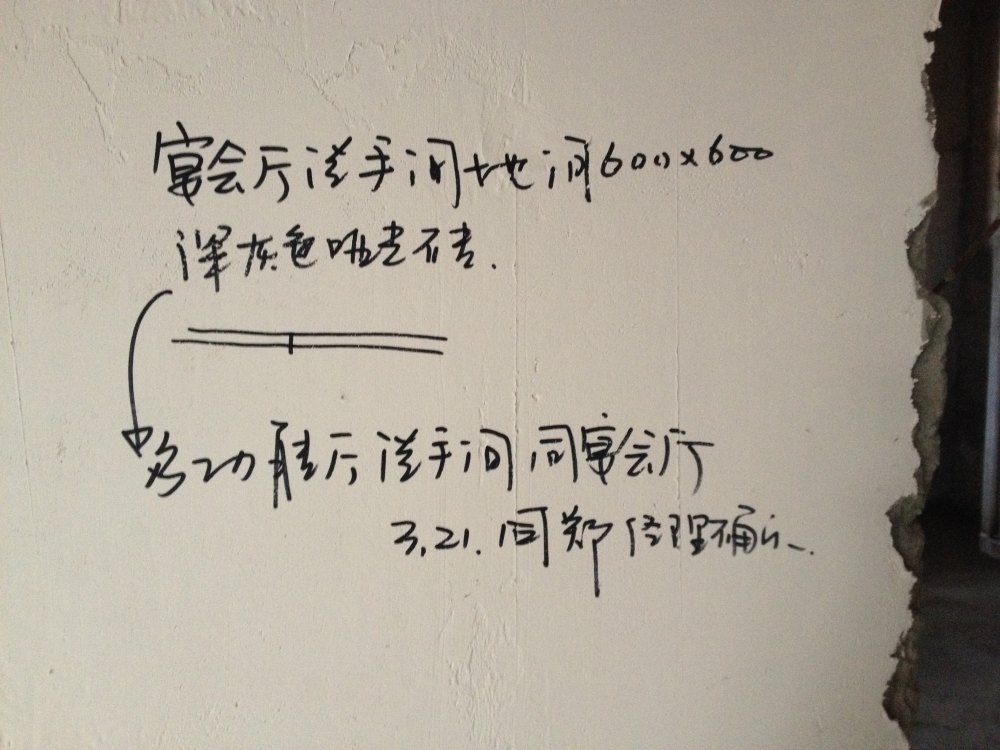 宴会厅洗手间地间600×600
深灰色哑光石砖.
多功能厅洗手间同宴会厅
3.21.同郑经理确认.